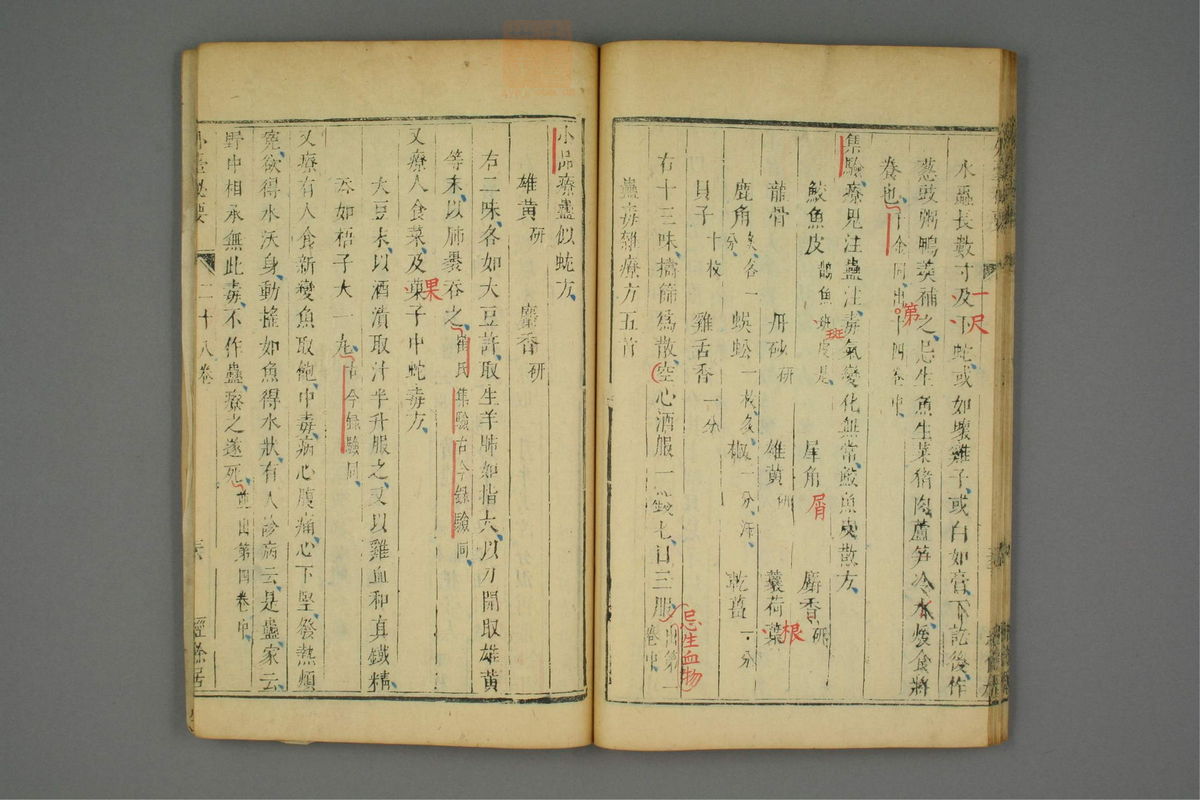 水蠱長數寸及下蛇或如壞雞子或白如膏下訖後作
一尺
蔥豉粥鴨羹補之忌生魚生菜豬肉蘆笋冷水煖食將
養也千金同出十四卷中
第
集驗療鬼注蠱注毒氣變化無常鮫魚皮散方
鮫魚皮 鵲魚斑皮是 犀角 麝香研
班
屑
龍骨 丹砂研 雄黃研 蘘荷葉
根
鹿角炙各一分 蜈蚣一枚炙 椒一分汗 乾薑一分
貝子十枚 雞舌香一分
右十三味擣篩為散空心酒服一錢七日三服出第一卷中
忌生血物
蠱毒雜療方五首
小品療蠱似蛇方
雄黃研 麝香研
右二味各如大豆許取生羊肺如指大以刀開取雄黃
等末以肺裹吞之崔氏集驗古今錄驗同
又療人食菜及菓子中蛇毒方
果
大豆末以酒漬取汁半升服之又以雞血和真鐵精
吞如梧子大一丸古今錄驗同
又療有人食新變魚取飽中毒病心腹痛心下堅發熱煩
寃欲得水沃身動搖如魚得水狀有人診病云是蠱家云
野中相承無此毒不作蠱療之遂死並出第四卷中
外臺秘要 二十八卷 經餘居